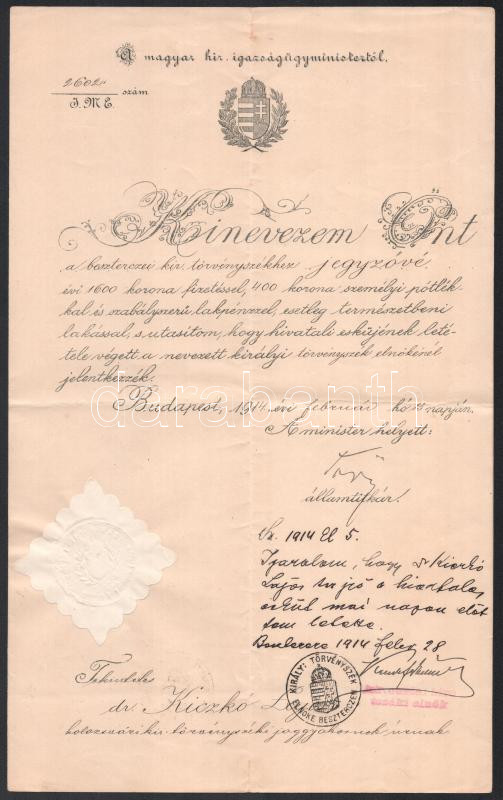 A magyar kir. igazságügyministertől.
2602 szám
I.M.E.
Kinevezem Önt
a beszterczei kir. törvényszékhez jegyzővé
évi 1600 korona fizetéssel, 400 korona személyi pótlék-
kal és szabályszerű lakpénzzel, esetleg természetbeni
lakással, s utasítom, hogy hivatali esküjének leté-
tele végett a nevezett királyi törvényszék elnökénél
jelentkezzék.
Budapest, 1914. évi február hó napján.
A minister helyett:
államtitkár.
1914 El 5.
Igazolom, hogy dr Kiczkó
Lajos a hivatalos
esküt mai napon előt-
tem letette.
1914 28
KIRÁLYI TÖRVÉNYSZÉK
ELNÖKE BESZTERCZÉN
Tekintetes
dr. Kiczkó Lajos
kolozsvári kir. törvényszéki joggyakornok úrnak
darabanth